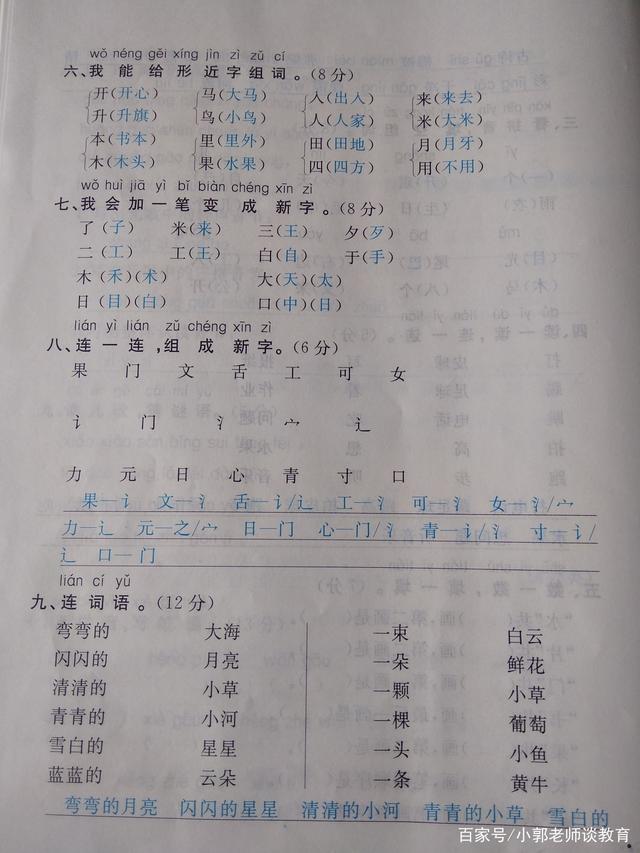 wǒ néng gěi xíng jìn zì zǔ cí
六、我 能 给 形 近 字 组 词 。(8 分)
开(开心) 马(大马) 人(出人) 来(来去)
升(升旗) 鸟(小鸟) 人(人家) 米(大米)
本(书本) 里(里外) 田(田地) 月(月牙)
木(木头) 果(水果) 四(四方) 用(不用)
wǒ huì jiā yì bǐ biàn chéng xīn zì
七、我 会 加 一 笔 变 成 新 字 。(8 分)
了(子) 米(来) 三(王) 夕(歹)
二(工) 工(王) 白(自) 于(手)
木(禾)(术) 大(天)(太)
日(目)(白) 口(中)(日)
lián yì lián zǔ chéng xīn zì
八、连 一 连 ,组 成 新 字 。(6 分)
果 门 文 舌 工 可 女
讠 门 氵 宀 辶
力 元 日 心 青 寸 口
果—讠 文—氵 舌—讠/辶 工—氵 可—氵 女—氵/宀
力—辶 元—之/宀 日—门 心—门/氵 青—讠/氵 寸—讠/
辶 口—门
lián cí yǔ
九、连 词 语 。(12 分)
弯弯的 大海 一束 白云
闪闪的 月亮 一朵 鲜花
清清的 小草 一颗 小草
青青的 小河 一棵 葡萄
雪白的 星星 一头 小鱼
蓝蓝的 云朵 一条 黄牛
弯弯的月亮 闪闪的星星 清清的小河 青青的小草 雪白的
百家号/小郭老师谈教育